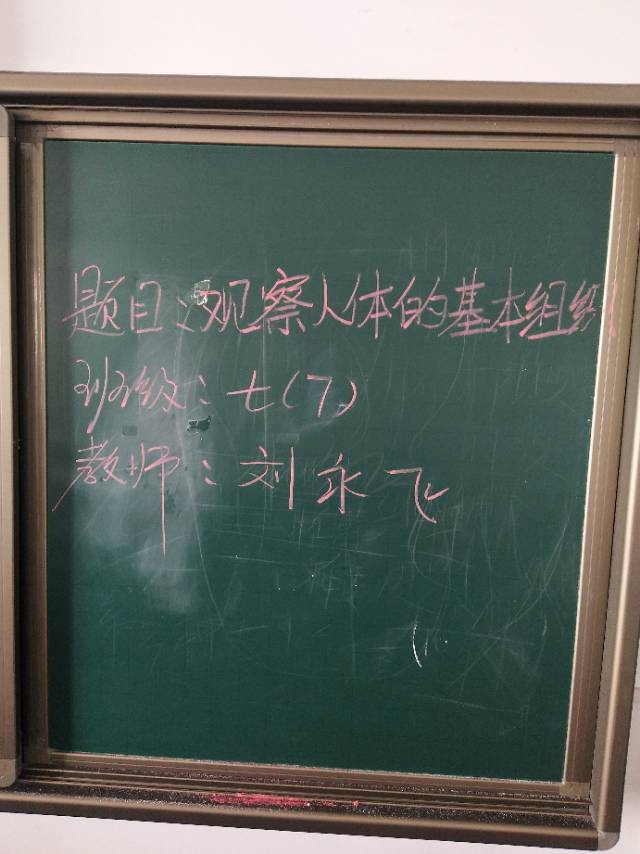 题目:观察人体的基本组织
班级:七(7)
教师:刘永飞